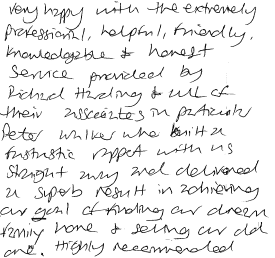 very happy with the extremely
professional, helpful, friendly,
knowledgable & honest
service provided by
Richard Harding & all of
their associates in particular
Peter who built a
fantastic rapport with us
straight away and delivered
a superb result in achieving
our goal of finding our dream
family home & selling our old
one. Highly recommended